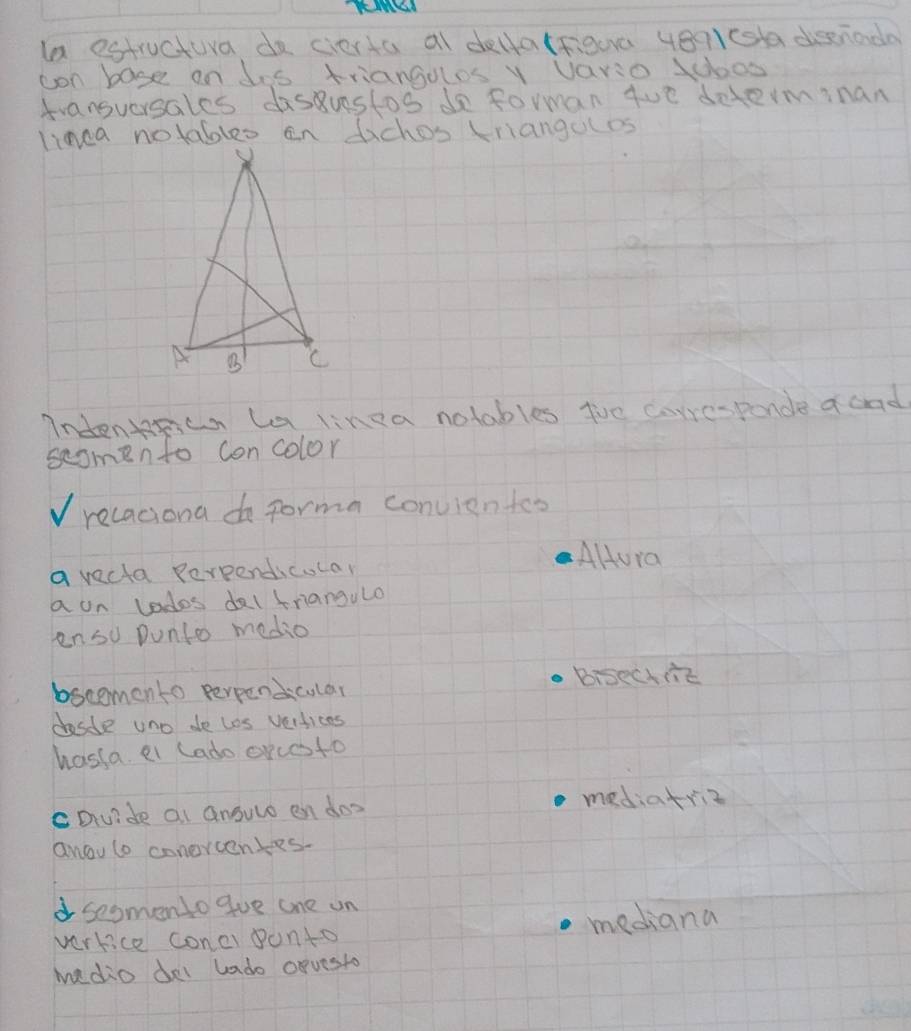 la estructura da cierta al delta (Figura 4891 esta diseñada
con base en dos triangulos y Vario tubos
transversales dasquestos de forman que determinan
linea notables en dichos triangulos
A B C
Indentifican La linea notables que corresponde a cad
segmento con color
√ relaciona de forma convientes
a recta Perpendicular
•Altura
a un lados del triangulo
en su punto medio
b segmento perpendicular
• Bisectriz
desde uno de los vertices
hasta el lado opuesto
c Divide al angulo en dos
• mediatriz
angulo congruentes
d segmento que une un
• mediana
vertice con el punto
medio del lado opuesto